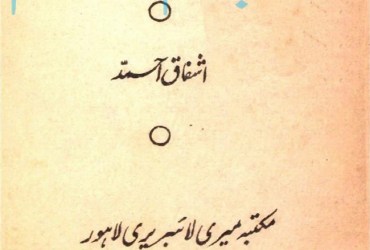 اشفاق احمد
مکتبہ میری لائبریری لاہور